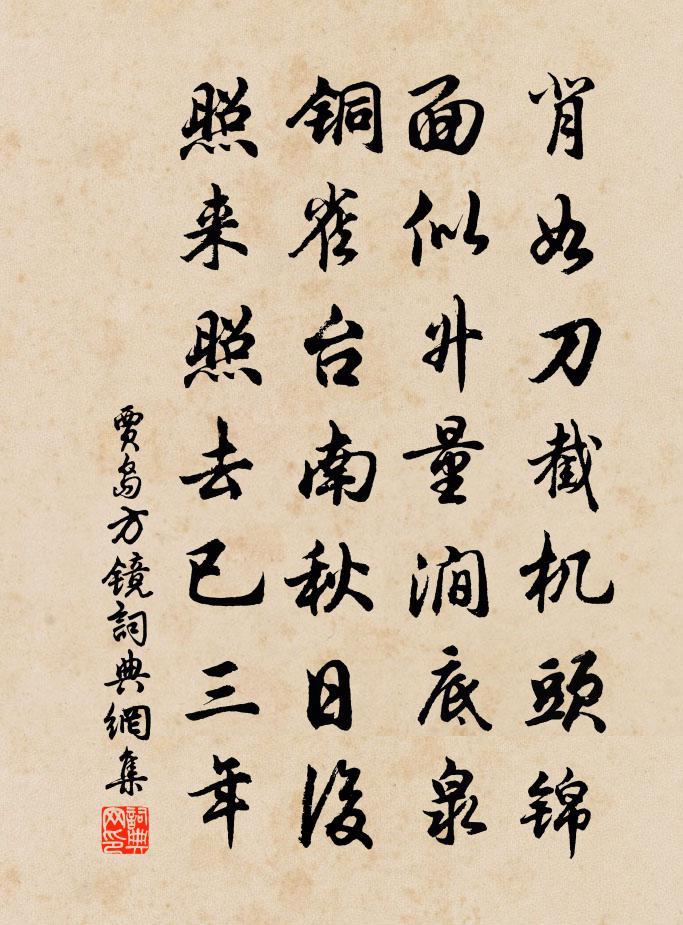 背如刀截机頭锦
面似升量澗底泉
铜雀台南秋日後
照来照去已三年
贾岛方镜詞典網集
詞典网印